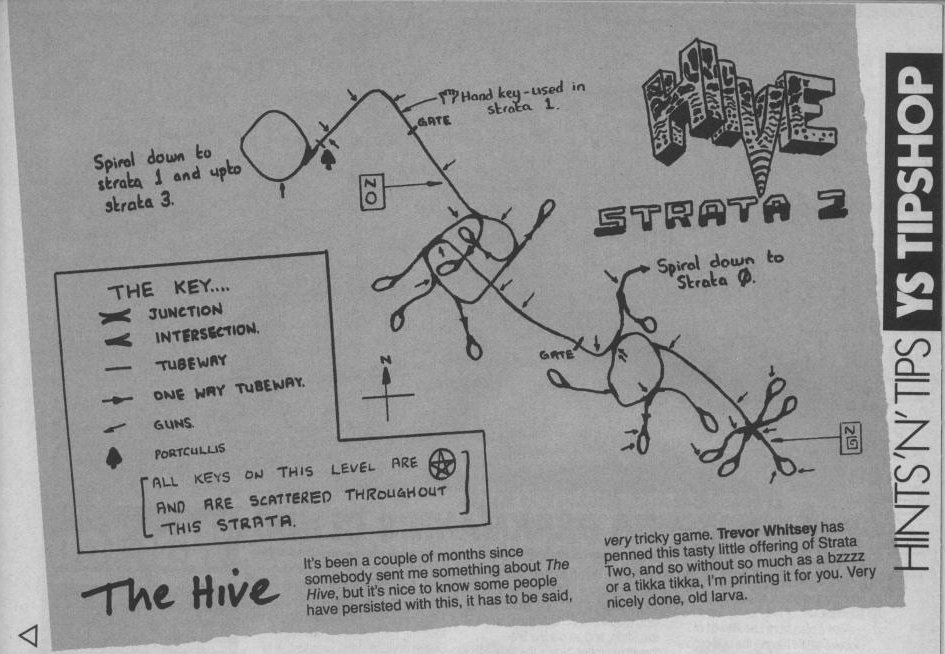 HIVE
STRATA 2
YS TIPSHOP
HINTS'N'TIPS
Hand key-used in
strata 1.
GATE
Spiral down to
strata 1 and upto
strata 3.
NO
Spiral down to
Strata Ø.
GATE
N
NG
THE KEY....
JUNCTION
INTERSECTION.
TUBEWAY
ONE WAY TUBEWAY.
GUNS.
PORTCULLIS
ALL KEYS ON THIS LEVEL ARE
AND ARE SCATTERED THROUGHOUT
THIS STRATA.
The Hive
It's been a couple of months since
somebody sent me something about The
Hive, but it's nice to know some people
have persisted with this, it has to be said,
very tricky game. Trevor Whitsey has
penned this tasty little offering of Strata
Two, and so without so much as a bzzzz
or a tikka tikka, I'm printing it for you. Very
nicely done, old larva.